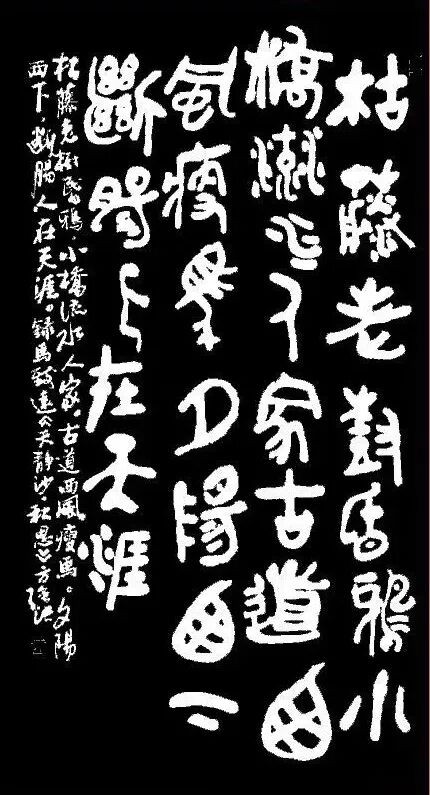 枯藤老樹昏鴉小
橋流水人家古道西
風瘦馬夕陽西下
斷腸人在天涯
枯藤老樹昏鴉。小橋流水人家。古道西風瘦馬。夕陽
西下。斷腸人在天涯。錄馬致遠《天靜沙·秋思》方